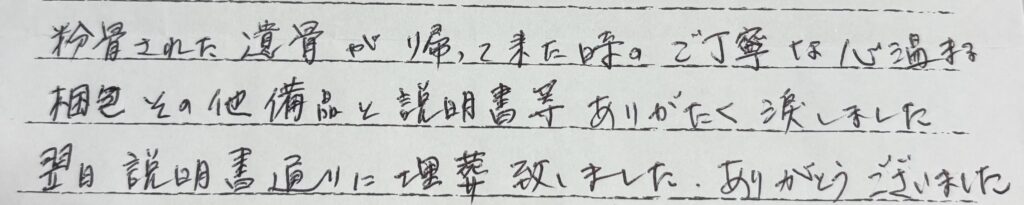 粉骨された遺骨が帰って来た時のご丁寧な心温まる
梱包その他備品と説明書等ありがたく涙しました
翌日説明書通りに埋葬致しました。ありがとうございました